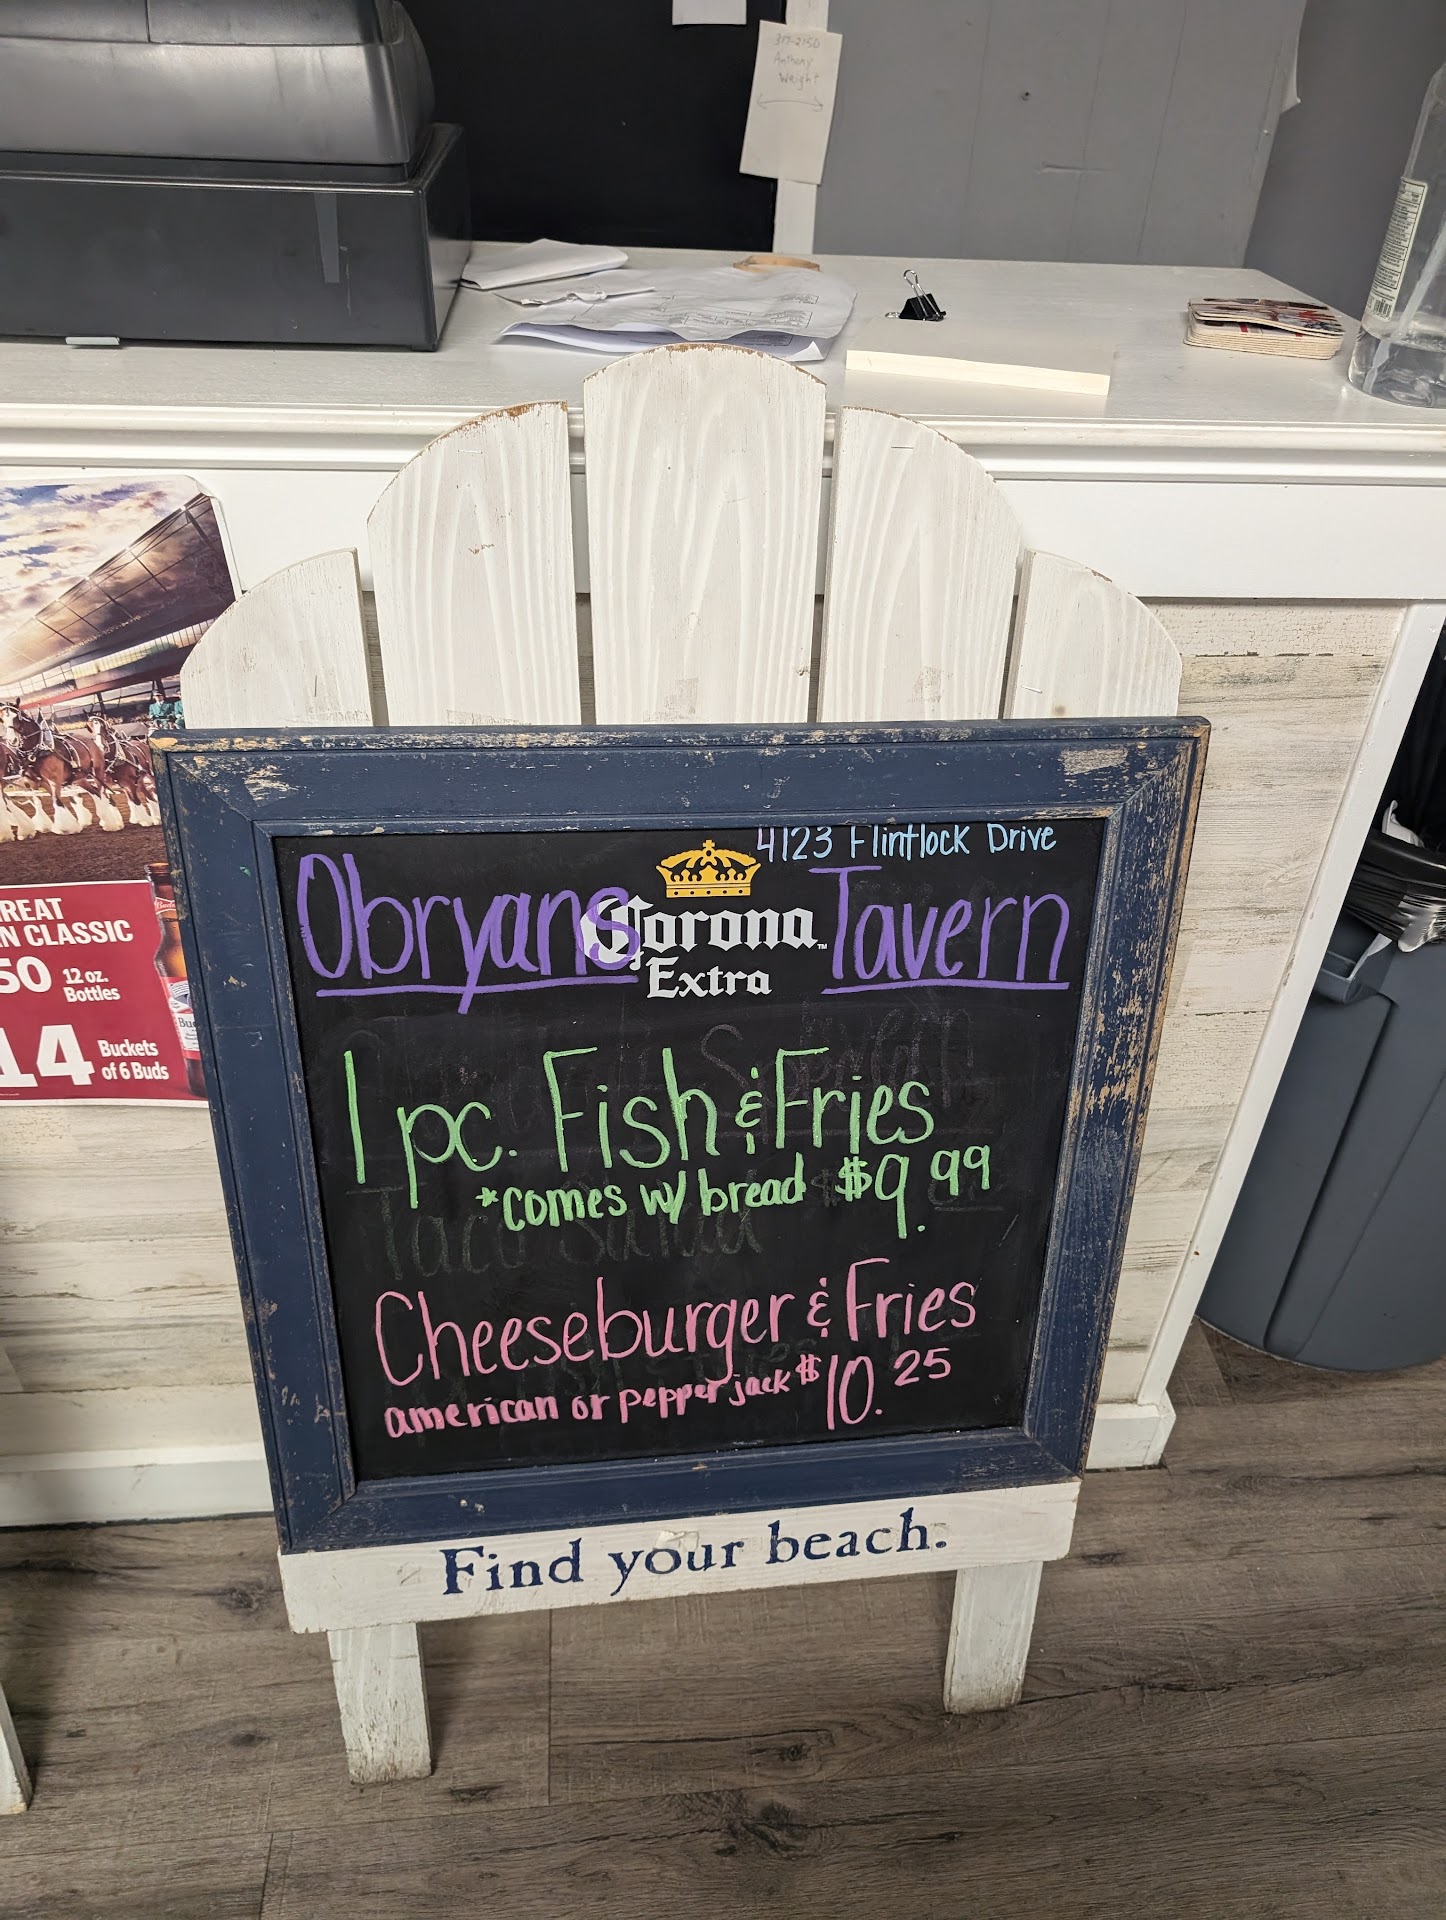 317-2150
Anthony
Wright
4123 Flintlock Drive
Obryans Tavern
Corona
Extra
1 pc. Fish & Fries
*comes w/ bread $9.99
Cheeseburger & Fries
american or pepper jack $10.25
Find your beach.
REAT
N CLASSIC
50 12 oz.
Bottles
14 Buckets
of 6 Buds